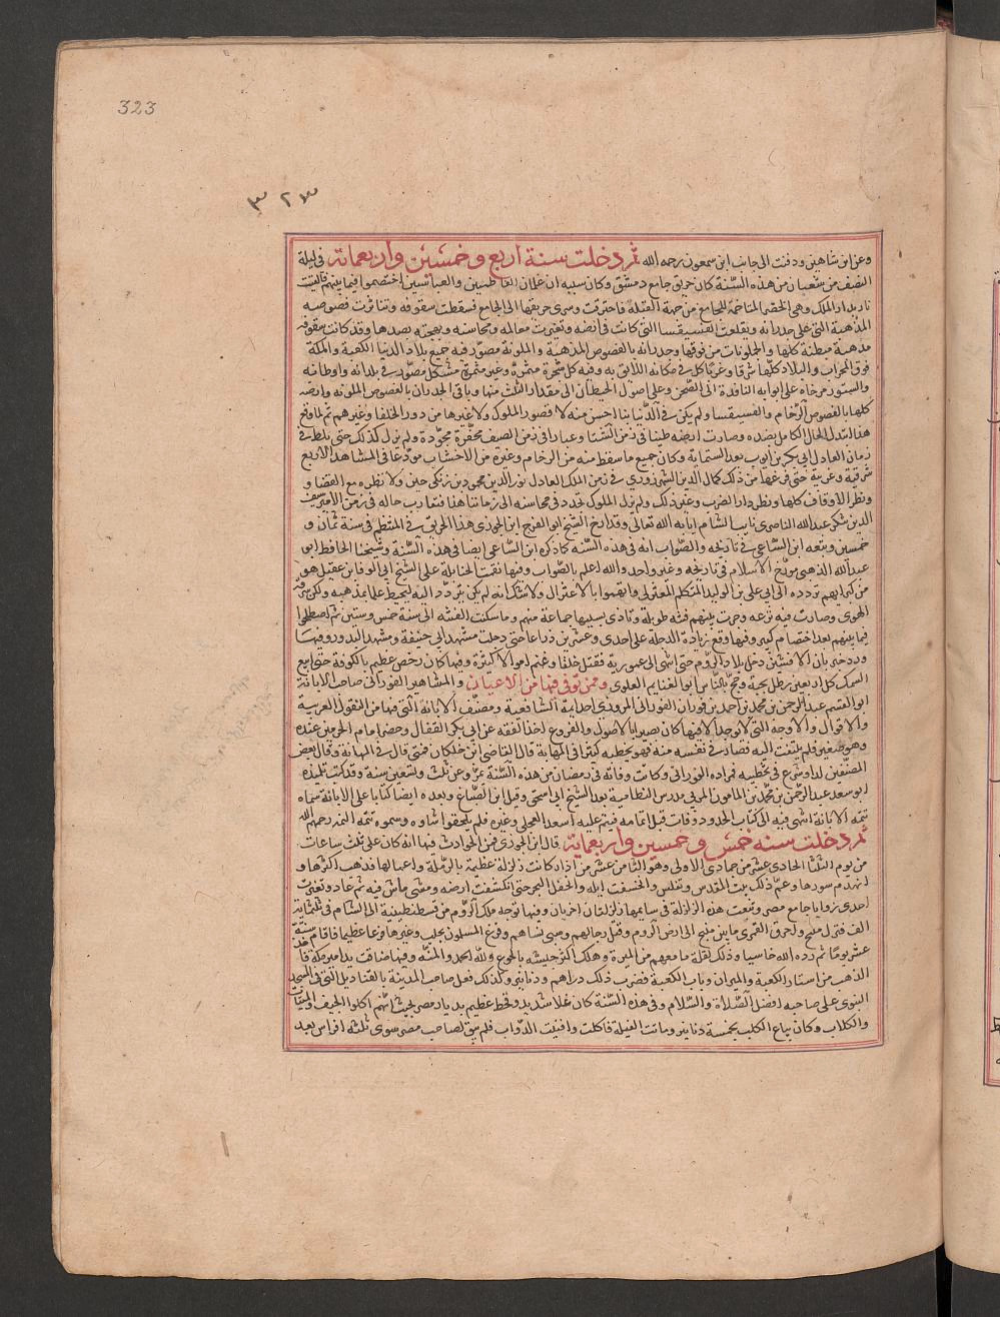 323
٣٢٣
وعن ابن شاهين ودفن الى جانب ابن سمعون رحمه الله ثم دخلت سنة اربع وخمسين واربعمائة في ليلة
النصف من شعبان من هذه السنة كان حريق جامع دمشق وكان سببه ان غلمان الفاطميين والعباسيين اختصموا فيما بينهم فالقيت
نار بدار الملك وهي الخضرا المتاخمة للجامع من جهة القبلة فاحترقت وسرى حريقها الى الجامع فسقطت سقوفه وتناثرت فصوصه
المذهبة التي على جدرانه وتقلعت الفسيفسا التي كانت في ارضه وتغيرت معالمه ومحاسنه وبهجته بضدها وقد كانت سقوفه
مذهبة مبطنة كلها والجملونات من فوقها وجدرانه بالفصوص المذهبة والملونة مصور فيه جميع بلاد الدنيا الكعبة والمكة
فوق المحراب والبلاد كلها شرقا وغربا كل في مكانه اللائق به وفيه كل شجرة مثمرة وغير مثمرة مشكل مصور في بلدانه واوطانه
والستور مرخاة على ابوابه النافذة الى الصحن وعلى اصول الحيطان الى مقدار الثلث منها وباقي الجدران بالفصوص الملونه وارضه
كلها بالفصوص الرخام والفسيفسا ولم يكن في الدنيا بنا احسن منه لا قصور الملوك ولا غيرها من دور الخلفا وغيرهم ثم لما وقع
هذا تبدل الحال الكامل بضده وصارت ارضه طينا في زمن الشتا وغبارا في زمن الصيف محفرة مجورة ولم يزل كذلك حتى بلط في
زمان العادل ابي بكر بن ايوب بعد الستمائة وكان جميع ما سقط منه من الرخام وغيره من الاخشاب مودعا في المشاهد الاربع
شرقية وغربية حتى فرغها من ذلك كمال الدين الشهرزوري في زمن الملك العادل نور الدين محمود بن زنكي حين ولاه نظره مع القضا و
ونظر الاوقاف كلها ونظر دار الضرب وغير ذلك ولم يزل الملوك تجدد في محاسنه الى زماننا هذا فتقارب حاله في زمن الامير سيف
الدين تنكز عبد الله الناصري نايب الشام اثابه الله تعالى وقد ارخ الشيخ ابو الفرج ابن الجوزي هذا الحريق في المنتظم في سنة ثمان و
خمسين وتبعه ابن الساعي في تاريخه والصواب انه في هذه السنة كما ذكره ابن الساعي ايضا في هذه السنة وشيخنا الحافظ ابو
عبد الله الذهبي مورخ الاسلام في تاريخه وغير واحد والله اعلم بالصواب وفيها نقمت الحنابلة على الشيخ ابي الوفا بن عقيل وهو
من كبرايهم تردده الى ابي علي بن الوليد المتكلم المعتزلي واتهموه بالاعتزال ولا شك انه لم يكن يتردد اليه ليحيط علما بمذهبه ولكن شرفه
الهوى وصارت فيه نزعه وجرت بينهم فتنة طويلة وتاذى بسببها جماعة منهم وما سكنت الفتنه الى سنة خمس وستين ثم اصطلحوا
فيما بينهم بعد اختصام كبير وفيها وقع زيادة الدجلة على احدى وعشرين ذراعا حتى دخلت مشهد ابي حنيفة ومشهد النذور وفيها
ورد خبر بان الافشين دخل بلاد الروم حتى انتهى الى عمورية فقتل خلقا وغنم اموالا كثيرة وفيها كان رخص عظيم بالكوفة حتى ابيع
السمك كل اربعين رطل بحبة وحج بالناس ابو الغنايم العلوي وممن توفي فيها من الاعيان والمشاهير الفوراني صاحب الابانة
ابو القسم عبد الرحمن بن محمد بن احمد بن فوران الفوراني المروزي احد ايمة الشافعية ومصنف الابانة التي فيها من النقول الغريبة
والاقوال والاوجه التي لا توجد الا فيها كان بصيرا بالاصول والفروع اخذ الفقه عن ابي بكر القفال وحضر امام الحرمين عنده
وهو صغير فلم يلتفت اليه فصار في نفسه منه فهو يخطيه كثيرا في النهاية قال القاضي ابن خلكان فمتى قال في النهاية وقال بعض
المصنفين كذا وشرع في تخطيه فمراده الفوراني وكانت وفاته في رمضان من هذه السنة عمرو عن ثلث وسبعين سنة وقد كتب تلميذه
ابو سعد عبد الرحمن بن محمد بن المامون المولي مدرس النظامية بعد الشيخ ابي اسحق وقبل ابن الصباغ وبعده ايضا كتابا على الابانة سماه
تتمة الابانة انتهى فيه الى كتاب الحدود ومات قبل اتمامه فتممه عليه اسعد العجلي وغيره فلم يلحقوا شاوه وسموه تتمة التتمه رحمهم الله
ثم دخلت سنة خمس وخمسين واربعمائة قال ابن الجوزي فمن الحوادث فيها انه كان على ثلث ساعات
من يوم الثلثا الحادي عشر من جمادى الاولى وهو الثامن عشر من اذار كانت زلزلة عظيمة بالرملة واعمالها فذهب اكثرها و
انهدم سورها وعم ذلك بيت المقدس ونابلس وانخسفت ايله وانجفل البحر حتى انكشفت ارضه ومشى ناس فيه ثم عاد وتغيرت
احدى زوايا جامع مصر وتبعت هذه الزلزلة في ساعتها زلزلتان اخريان وفيها توجه ملك الروم من قسطنطينية الى الشام في ثلثماية
الف فنزل منبج واحرق القرى ما بين منبج الى ارض الروم وقتل رجالهم وسبى نساهم وفزع المسلمون بحلب وغيرها فزعا عظيما فاقام ستة
عشر يوما ثم رده الله خاسيا وذلك لقلة ما معهم من الميرة وهلك اكثر جيشه بالجوع ولله الحمد والمنة وفيها ضاقت يد امير مكة فاخذ
الذهب من استار الكعبة والميزاب وباب الكعبة فضرب ذلك دراهم ودنانير وكذلك فعل صاحب المدينة بالقناديل التي في المسجد
النبوي على صاحبه افضل الصلاة والسلام وفي هذه السنة كان غلا شديد وقحط عظيم بديار مصر بحيث انهم اكلوا الجيف والميتات
والكلاب وكان يباع الكلب بخمسة دنانير وماتت الفيلة فاكلت وافنيت الدواب فلم يبق لصاحب مصر سوى ثلثه افراس بعد